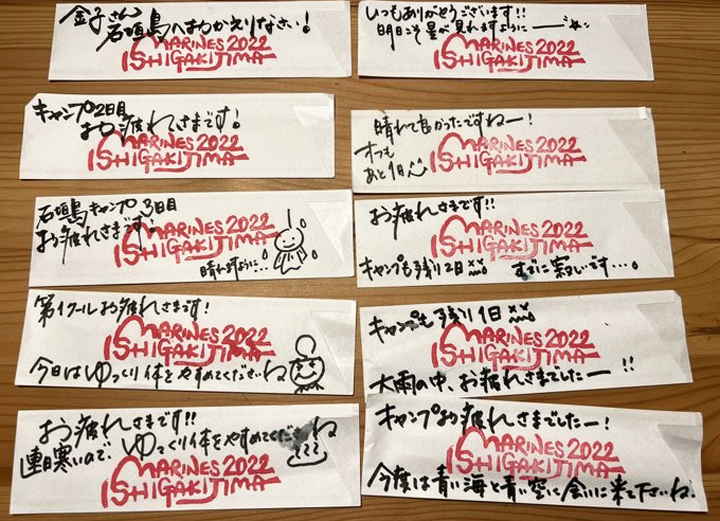 金子さん
石垣島へおかえりなさい!
MARINES 2022
ISHIGAKIJIMA
キャンプ2日目
お疲れさまです!
MARINES 2022
ISHIGAKIJIMA
石垣島キャンプ3日目
お疲れさまです。
MARINES 2022
ISHIGAKIJIMA
晴れますように…
第1クールお疲れさまです!
MARINES 2022
ISHIGAKIJIMA
今日はゆっくり体をやすめてくださいね
お疲れさまです!!
連日寒いので、ゆっくり体をやすめてくださいね
MARINES 2022
ISHIGAKIJIMA
いつもありがとうございます!!
明日こそ星が見れますようにー
MARINES 2022
ISHIGAKIJIMA
晴れて良かったですねー!
あと1日
MARINES 2022
ISHIGAKIJIMA
お疲れさまです!!
MARINES 2022
ISHIGAKIJIMA
キャンプも残り2日 すでに寂しいです…。
キャンプも残り1日
MARINES 2022
ISHIGAKIJIMA
大雨の中、お疲れさまでしたー!!
キャンプお疲れさまでしたー!
MARINES 2022
ISHIGAKIJIMA
今度は青い海と青い空に会いに来て下さいね。